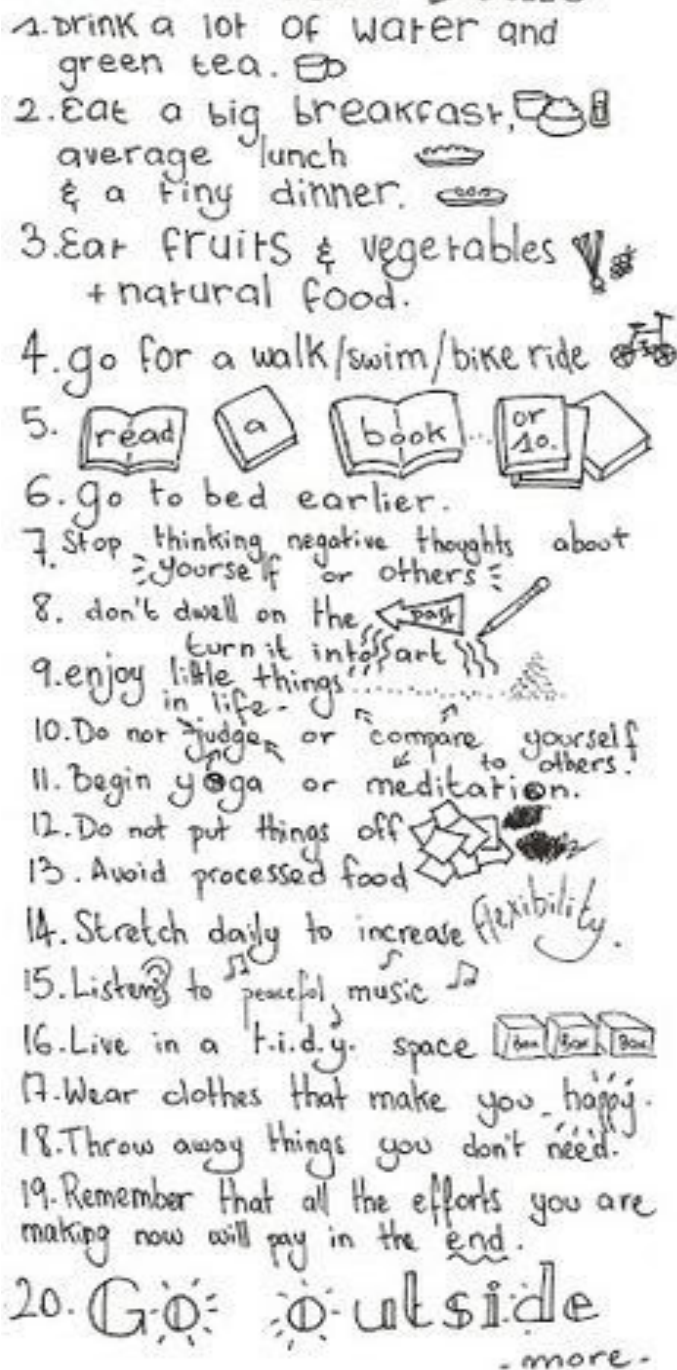 1. Drink a lot of water and
green tea.
2. Eat a big breakfast,
average lunch
& a tiny dinner.
3. Eat fruits & vegetables
+ natural food.
4. go for a walk/swim/bike ride
5. read a book... or 10.
6. go to bed earlier.
7. Stop thinking negative thoughts about
yourself or others
8. don't dwell on the past
turn it into art
9. enjoy little things
in life.
10. Do not judge or compare yourself
to others.
11. Begin yoga or meditation.
12. Do not put things off
13. Avoid processed food
14. Stretch daily to increase flexibility.
15. Listen to peaceful music
16. Live in a t.i.d.y. space Box Box Box
17. Wear clothes that make you happy.
18. Throw away things you don't need.
19. Remember that all the efforts you are
making now will pay in the end.
20. Go outside
- more -